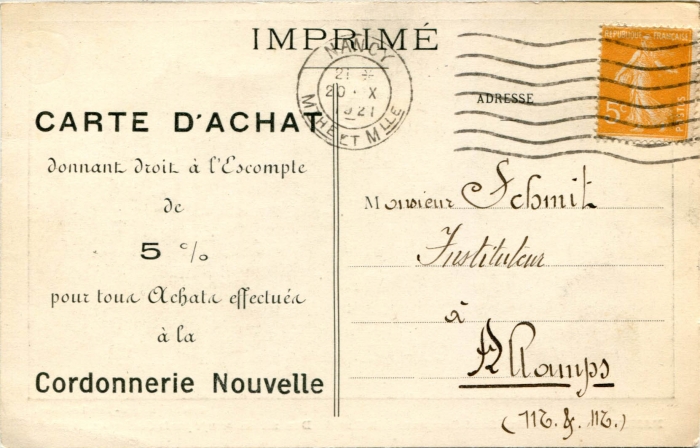 IMPRIMÉ
NANCY
21 *
20 · X
1921
MTHE ET MLLE
REPUBLIQUE FRANÇAISE
5c
POSTES
ADRESSE
CARTE D'ACHAT
donnant droit à l'Escompte
de
5 %
pour tous Achats effectués
à la
Cordonnerie Nouvelle
Monsieur Schmit
Instituteur
à
(M. & M.)